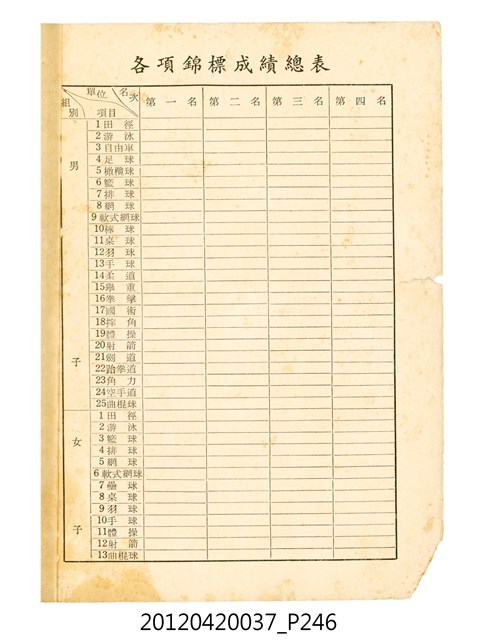 各項錦標成績總表
名次
單位
組別
項目
第一名 第二名 第三名 第四名
男子
1 田徑
2 游泳
3 自由車
4 足球
5 橄欖球
6 籃球
7 排球
8 網球
9 軟式網球
10 棒球
11 桌球
12 羽球
13 手球
14 柔道
15 舉重
16 拳擊
17 國術
18 摔角
19 體操
20 射箭
21 劍道
22 跆拳道
23 角力
24 空手道
25 曲棍球
女子
1 田徑
2 游泳
3 籃球
4 排球
5 網球
6 軟式網球
7 壘球
8 桌球
9 羽球
10 手球
11 體操
12 射箭
13 曲棍球
20120420037_P246